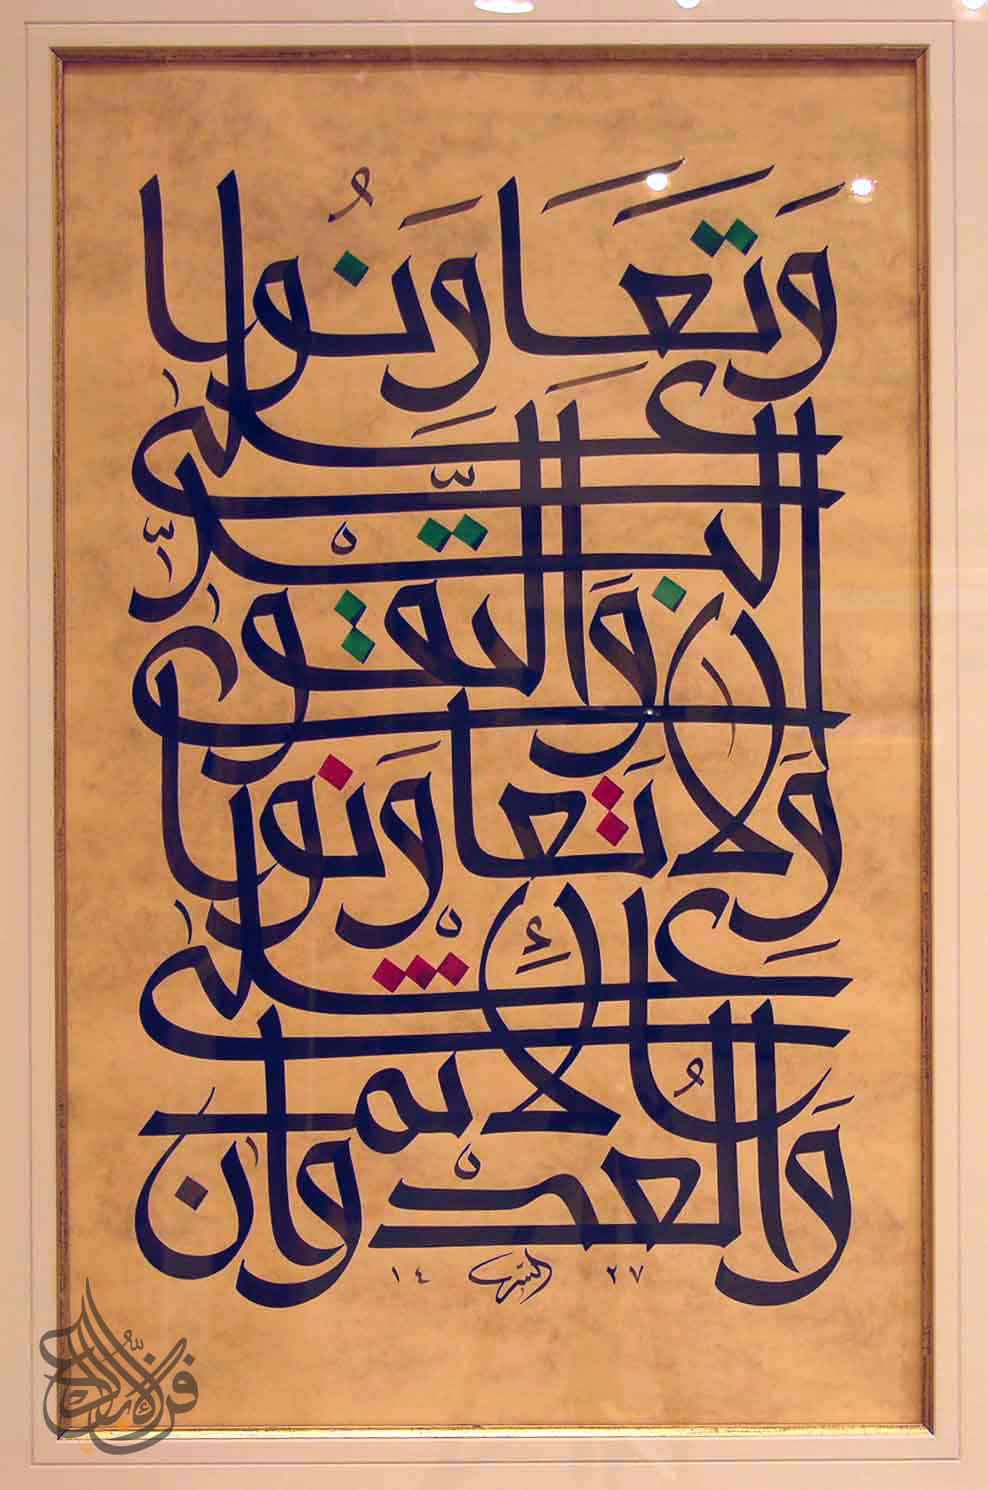 وَتَعَاوَنُوا
عَلَى
البِرِّ
وَالتَّقْوَى
وَلَا تَعَاوَنُوا
عَلَى
الْإِثْمِ
وَالْعُدْوَانِ
١٤٢٧